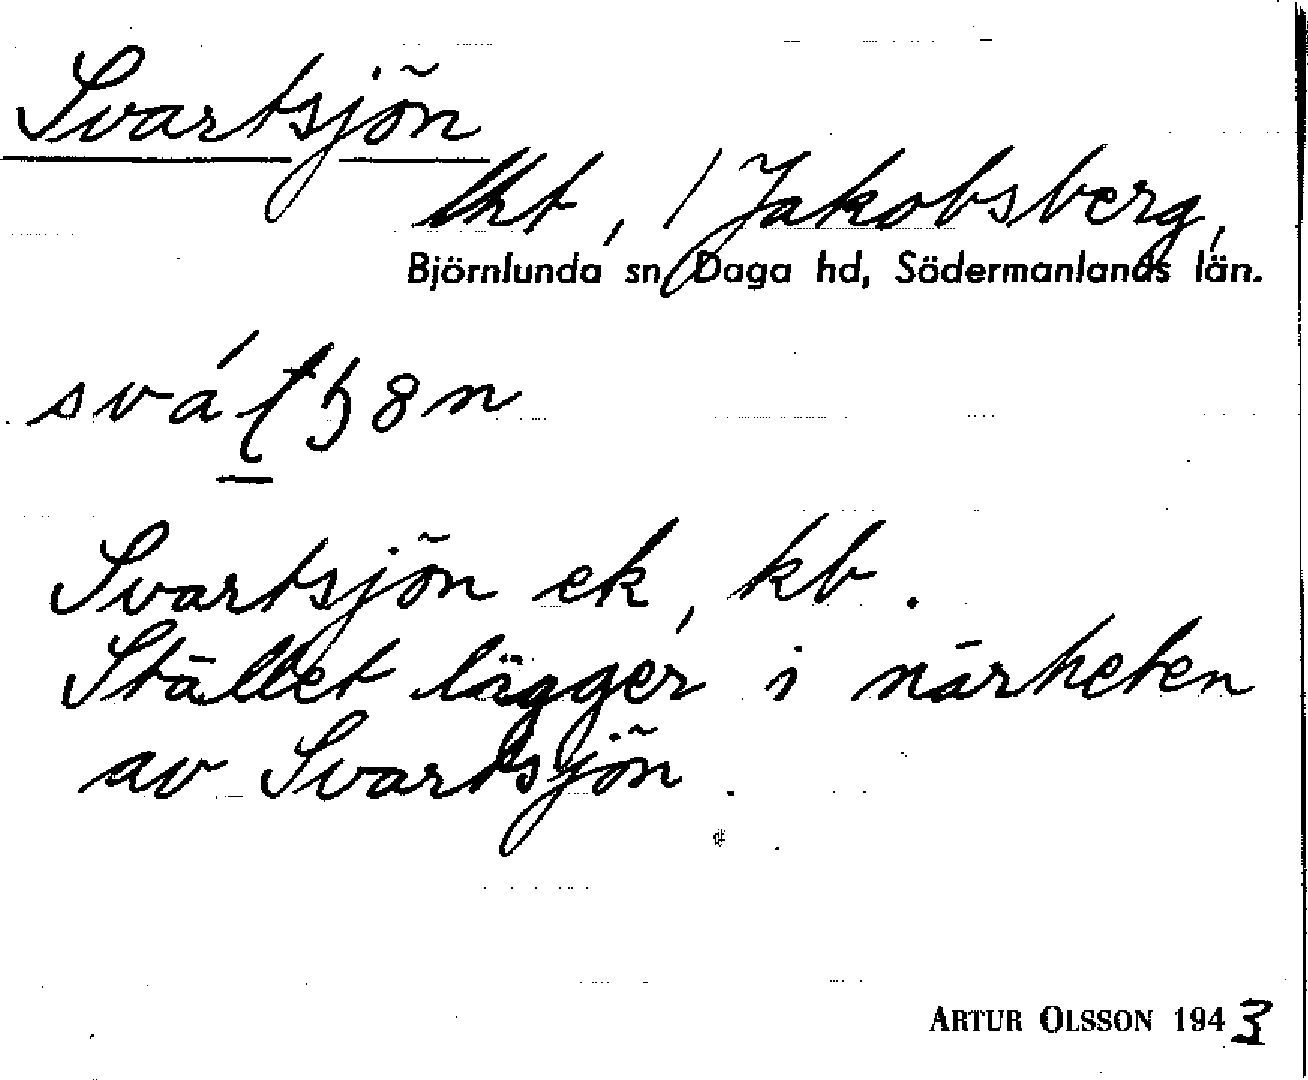 Svartsjön
lht, 1 Jakobsberg,
Björnlunda sn, Daga hd, Södermanlands län.
Svartsjön ek, kb.
Stället lägger i närheten
av Svartsjön.
ARTUR OLSSON 1943